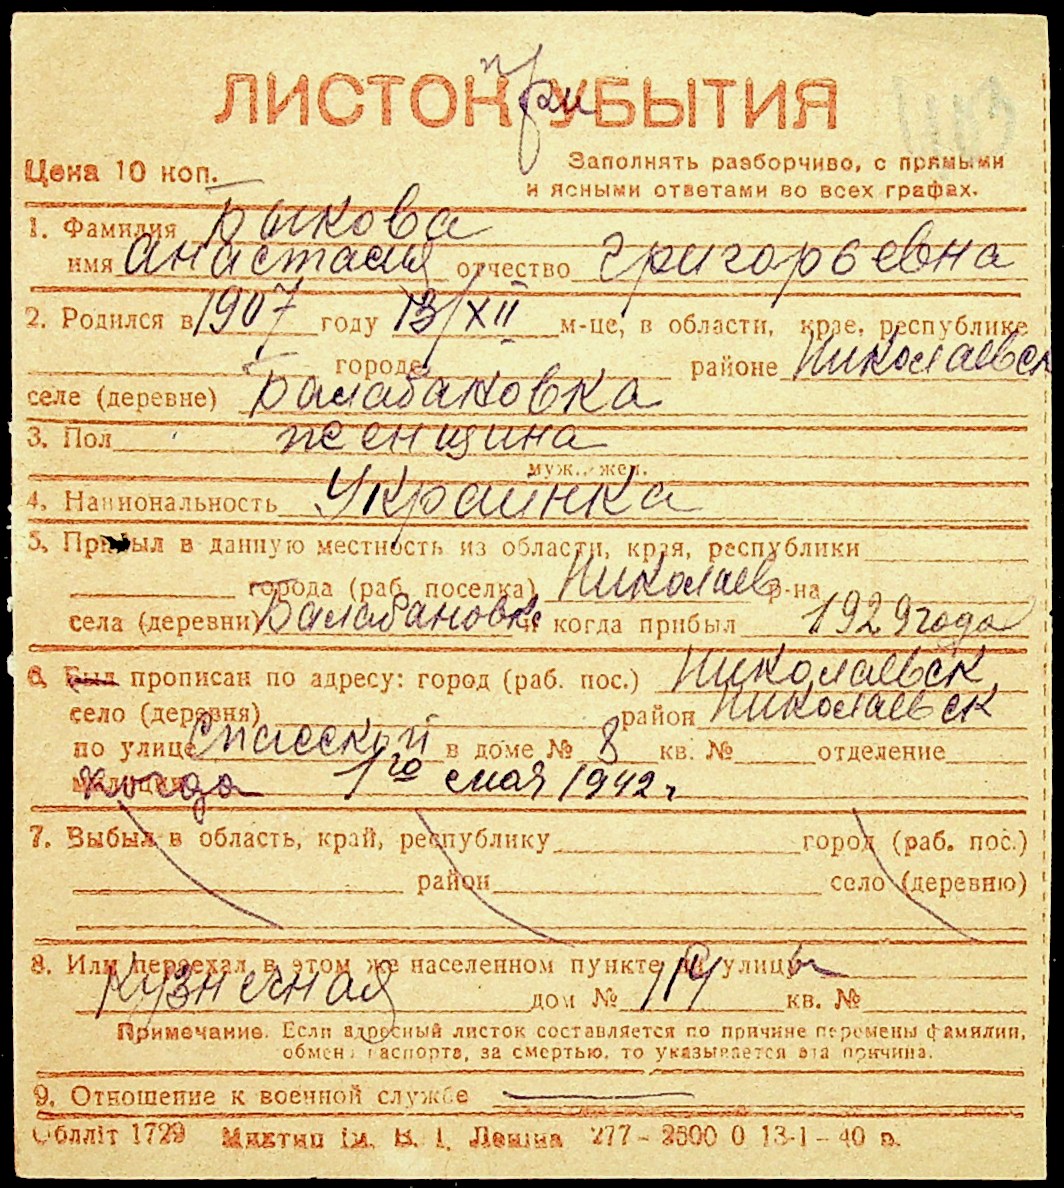 ЛИСТОК при УБЫТИЯ
Цена 10 коп.
Заполнять разборчиво, с прямыми
и ясными ответами во всех графах.
1. Фамилия Быкова
имя Анастасия отчество Григорьевна
2. Родился в 1907 году 13/XII м-це, в области, крае, республике
городе районе Николаевск
селе (деревне) Балабановка
3. Пол женщина
муж., жен.
4. Национальность Украинка
5. Прибыл в данную местность из области, края, республики
города (раб. поселка) Николаев р-на
села (деревни) Балабановка и когда прибыл 1929 года
6. Был прописан по адресу: город (раб. пос.) Николаевск
село (деревня) район Николаевск
по улице Спасской в доме № 8 кв. № отделение
милиции когда 1го мая 1942 г.
7. Выбыл в область, край, республику город (раб. пос.)
район село (деревню)
8. Или переехал в этом же населенном пункте на улицы
Кузнечная дом № 114 кв. №
Примечание. Если адресный листок составляется по причине перемены фамилии,
обмена паспорта, за смертью, то указывается эта причина.
9. Отношение к военной службе —
Облліт 1729 Миктип ім. В. І. Леніна 277 - 2500 0 13-1 - 40 р.